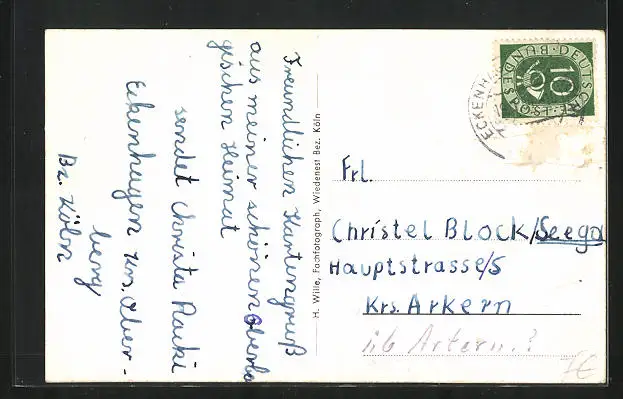 Freundlichen Kartengruß
aus meiner schönen Oberber
gischen Heimat
sendet Christa
Eckenhagen
berg
Bz. Köln
H. Wille, Fachfotograph, Wiedenest Bez. Köln
DEUTSCHE BUNDESPOST
10
ECKENHA
Frl.
Christel Block/Seega
Hauptstrasse/5
Krs. Arkern
üb Artern.?